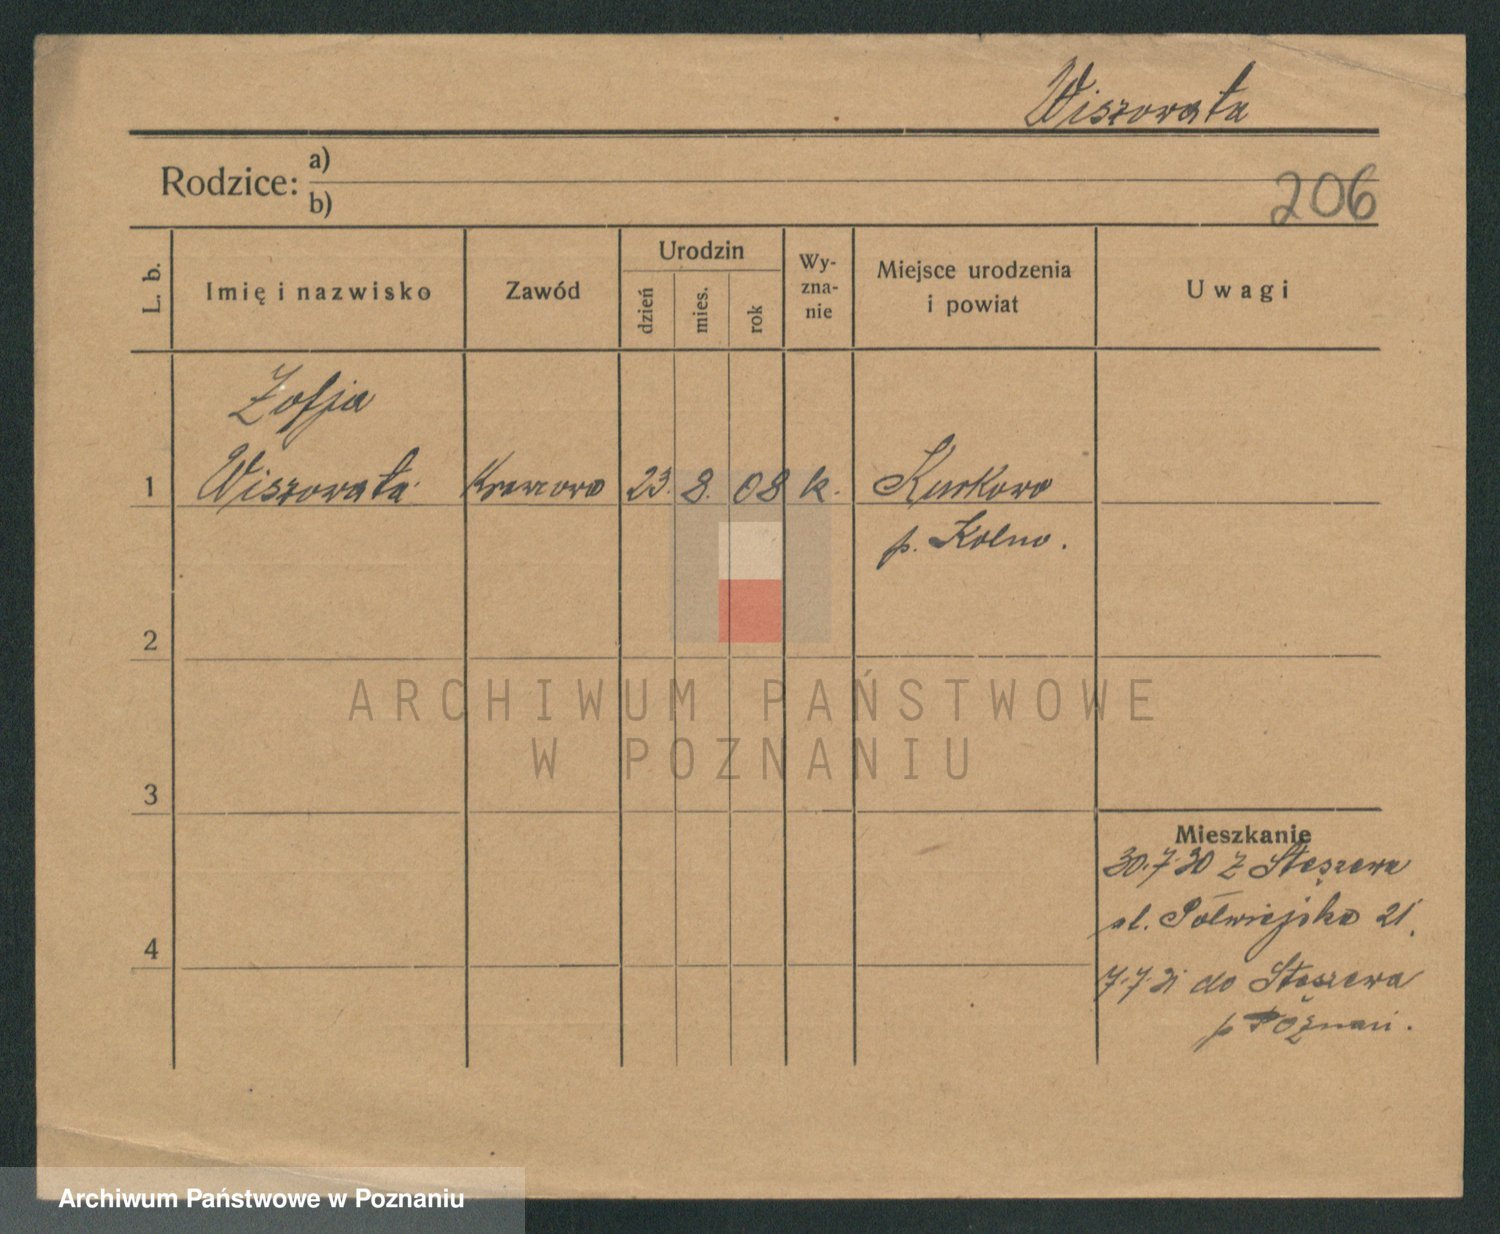 Wiszowata
Rodzice: a)
b)
206
L. b.
Imię i nazwisko
Zawód
Urodzin
dzień
mies.
rok
Wy-
zna-
nie
Miejsce urodzenia
i powiat
Uwagi
Zofja
1 Wiszowata Krawcowa 23. 8. 08 k. Kurkowo
p. Kolno.
2
3
4
Mieszkanie
30.7.30 z Stęszewa
ul. Półwiejska 21.
7.7.31 do Stęszewa
p Poznań.
ARCHIWUM PAŃSTWOWE
W POZNANIU
Archiwum Państwowe w Poznaniu